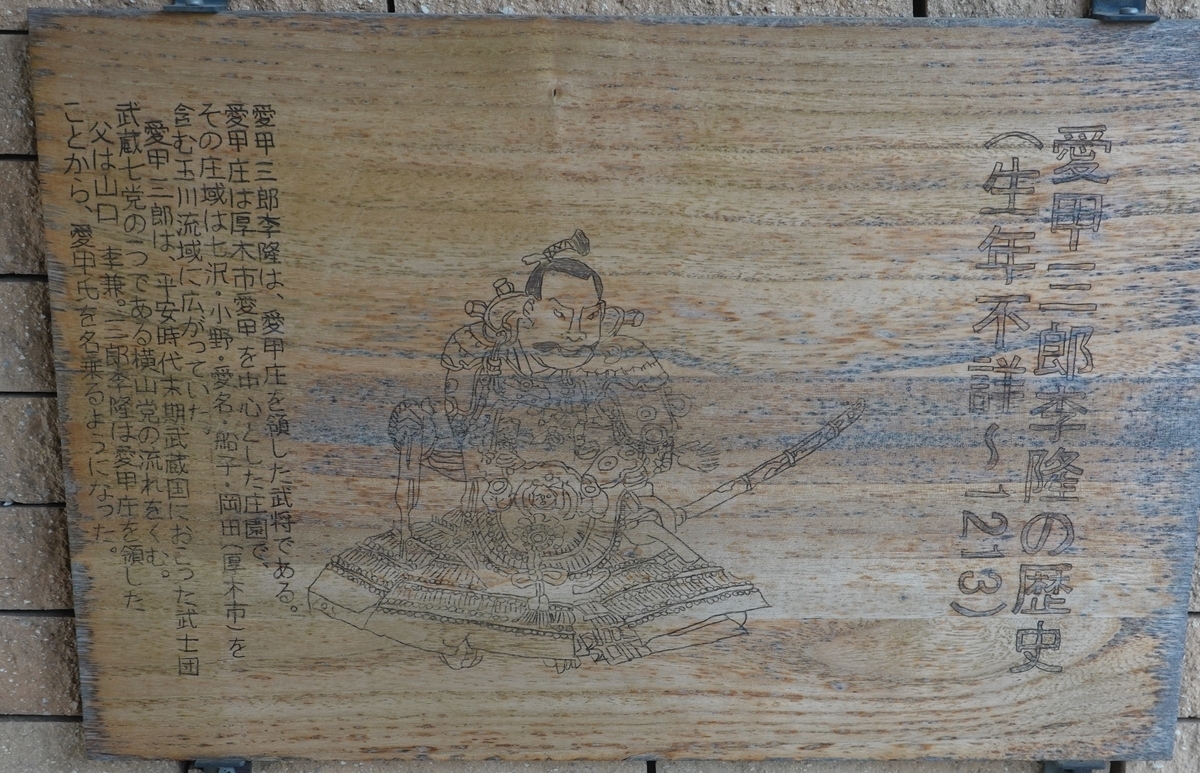 愛甲三郎季隆の歴史
(生年不詳～1213)
愛甲三郎季隆は、愛甲庄を領した武将である。
愛甲庄は厚木市愛甲を中心とした庄園で、
その庄域は七沢・小野・愛名・船子・岡田(厚木市)を
含む玉川流域に広がっていた
愛甲三郎は、平安時代末期武蔵国におこった武士団
武蔵七党の一つである横山党の流れをくむ。
父は山口 季兼。三郎季隆は愛甲庄を領した
ことから、愛甲氏を名乗るようになった。